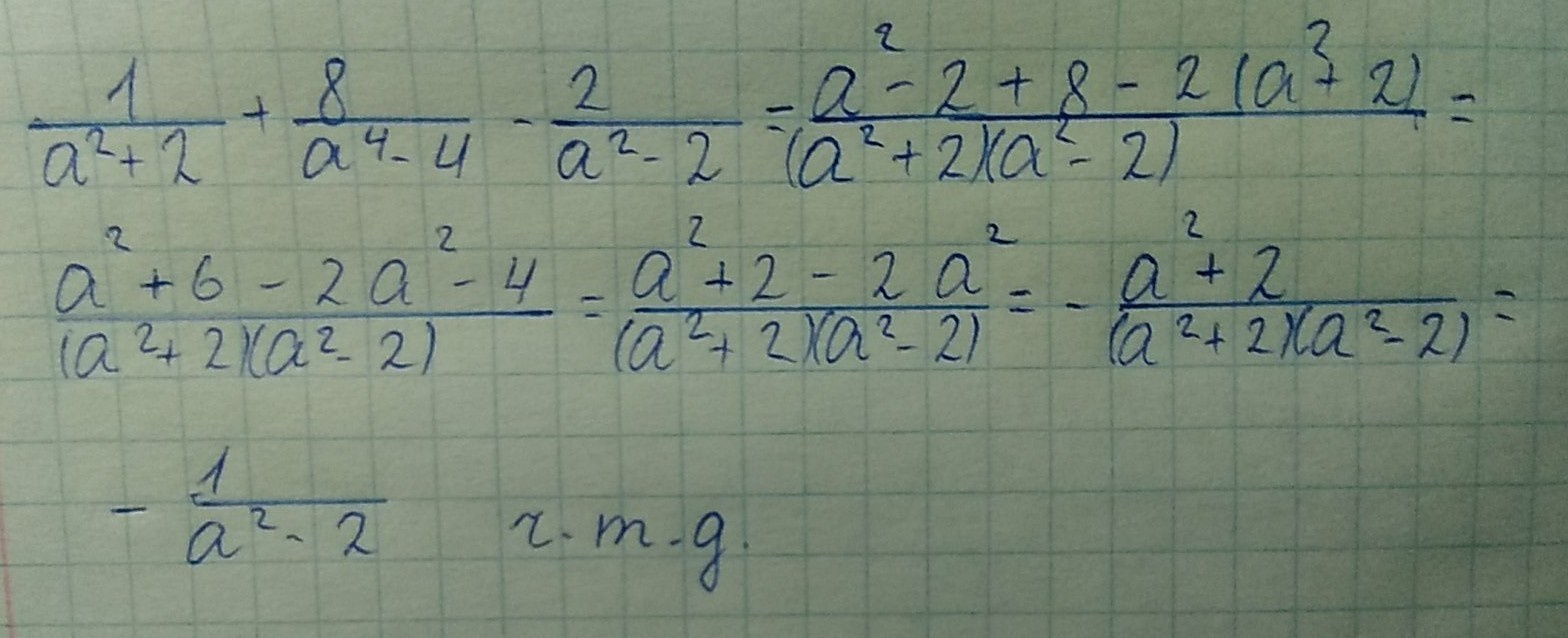 1/(a²+2) + 8/(a⁴-4) - 2/(a²-2) = (a²-2+8-2(a²+2))/((a²+2)(a²-2)) =
(a²+6-2a²-4)/((a²+2)(a²-2)) = (a²+2-2a²)/((a²+2)(a²-2)) = - (a²+2)/((a²+2)(a²-2)) =
- 1/(a²-2) ч.т.д.